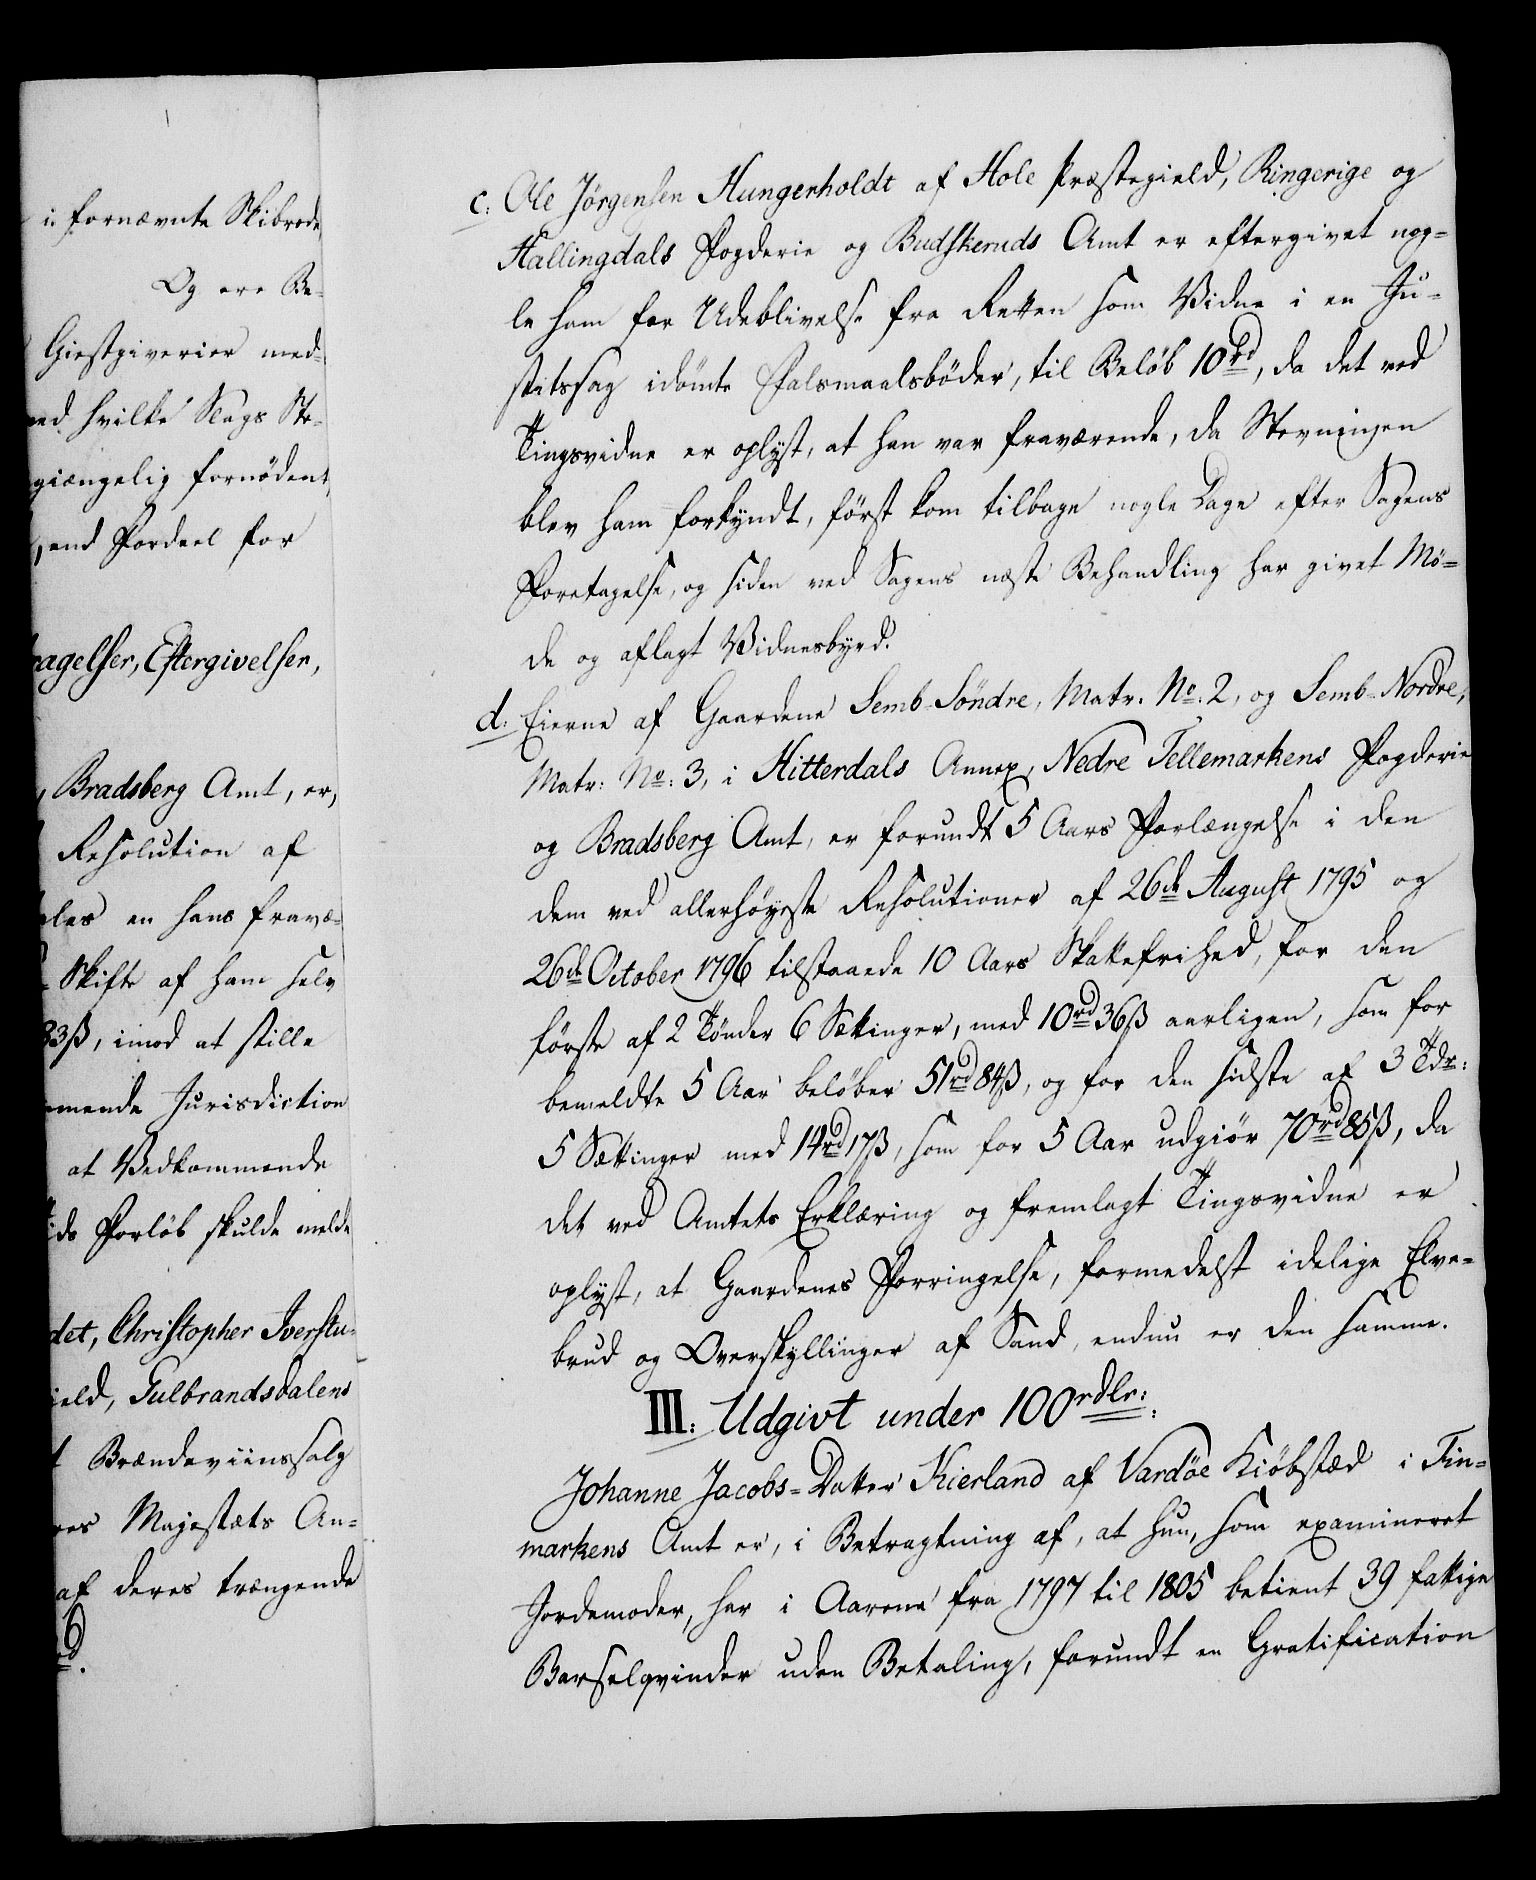 i fornævnte Skibrode
Og ere Be-
Giestgiverier med-
ed hvilke Slags Ste-
giængelig fornödent,
end Fordeel for
tagelser, Eftergivelser,
Bradsberg Amt, er,
Resolution af
les en hans fravæ-
Skifte af ham selv
83ß, imod at stille
mende Jurisdiction
at Vedkommende
ids Forløb skulde melde
det, Christopher Iverstu-
ield, Gulbrandsdalens
Brændeviinssalg
res Majestæts An-
af deres trængende
rd.
c: Ole Jörgensen Hungerholdt af Hole Præstegield, Ringerige og
Hallingdals Fogderie og Budskeruds Amt er eftergivet nog-
le ham for Udeblivelse fra Retten som Vidne i en Ju-
stitssag idömte Falsmaalsböder, til Belöb 10rd, da det ved
Tingsvidne er oplyst, at han var fraværende, da Stevningen
blev ham forkyndt, först kom tilbage nogle Dage efter Sagens
Foretagelse, og siden ved Sagens næste Behandling har givet Mö-
de og aflagt Vidnesbyrd.
d: Eierne af Gaardene Semb-Söndre, Matr. No. 2, og Semb-Nordre,
Matr: No: 3, i Hitterdals Annex, Nedre Tellemarkens Fogderie
og Bradsberg Amt, er forundt 5 Aars Forlængelse i den
dem ved allerhöyeste Resolutioner af 26de August 1795 og
26de October 1796 tilstaaede 10 Aars Skattefrihed, for den
förste af 2 Tönder 6 Sættinger, med 10rd 36ß aarligen, som for
bemeldte 5 Aar belöber 51rd 84ß, og for den sidste af 3 Tdr:
5 Sættinger med 14rd 17ß, som for 5 Aar udgiör 70rd 85ß, da
det ved Amtets Erklæring og fremlagt Tingsvidne er
oplyst, at Gaardenes Forringelse, formedelst idelige Elve-
brud og Overskyllinger af Sand, endnu er den samme.
III: Udgivt under 100rdlr:
Johanne Jacobs-Datter Kierland af Vardöe Kiöbstæd i Fin-
markens Amt er, i Betragtning af, at hun, som examineret
Jordemoder, har i Aarene fra 1797 til 1805 betient 39 fattige
Barselqvinder uden Betaling, forundt en Gratification